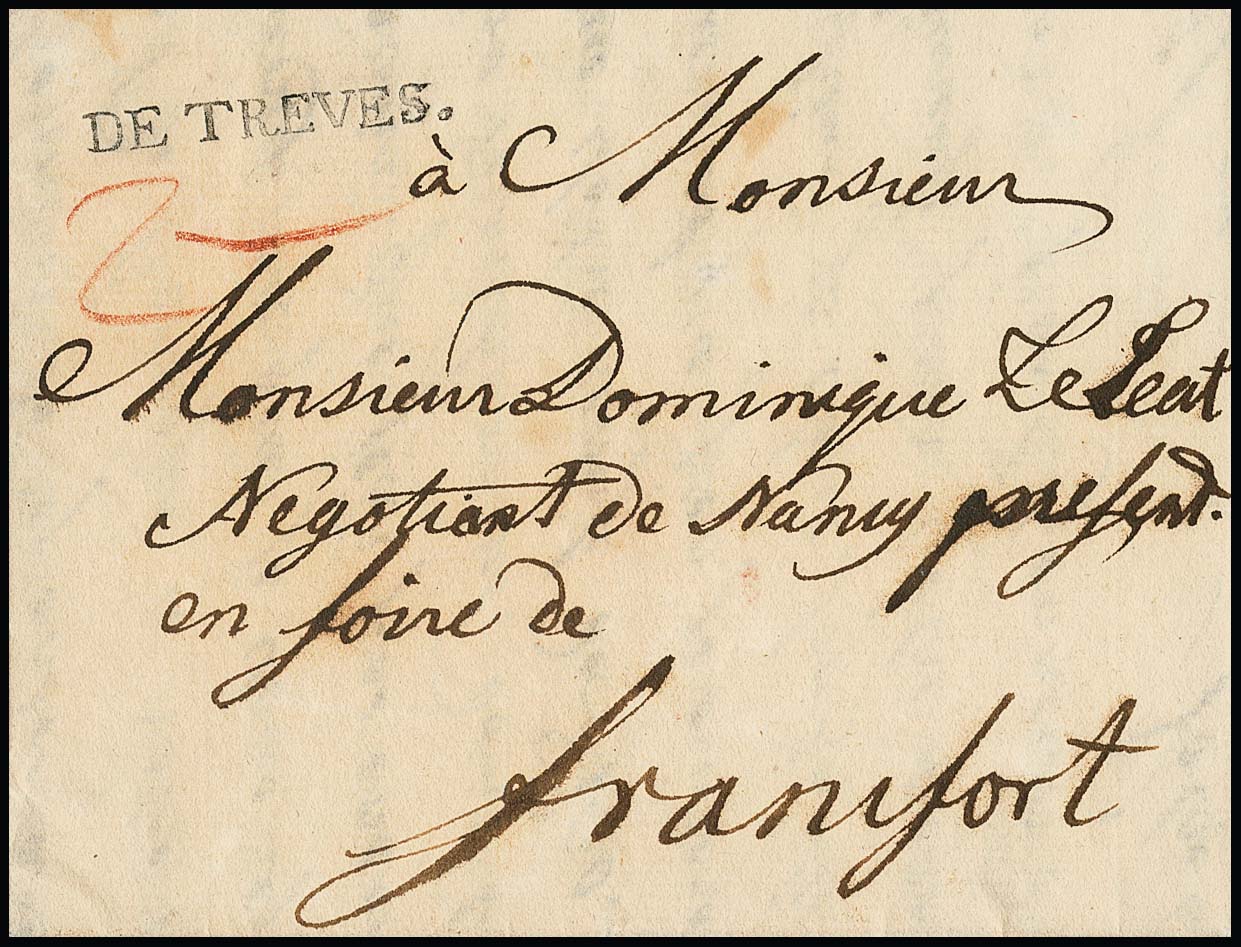 DE TREVES.
à Monsieur
Monsieur Dominique Le
Negotiant de Nancy present.
en foire de
francfort